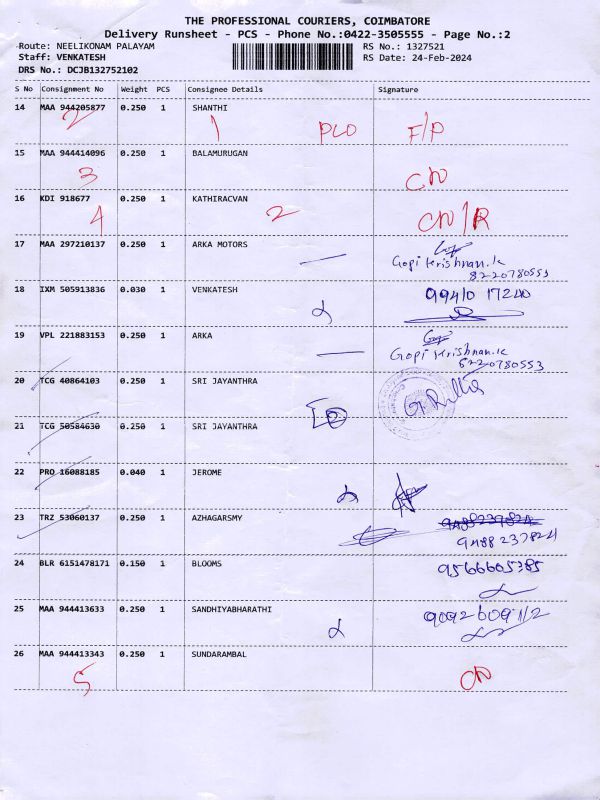 THE PROFESSIONAL COURIERS, COIMBATORE
Delivery Runsheet - PCS - Phone No.:0422-3505555 - Page No.:2
Route: NEELIKONAM PALAYAM
RS No.: 1327521
Staff: VENKATESH
RS Date: 24-Feb-2024
DRS No.: DCJB132752102
S No Consignment No Weight PCS Consignee Details Signature
14 MAA 944205877 0.250 1 SHANTHI
2 1 PLO F/P
15 MAA 944414096 0.250 1 BALAMURUGAN
3 CN
16 KDI 918677 0.250 1 KATHIRACVAN
4 2 CN/R
17 MAA 297210137 0.250 1 ARKA MOTORS
Gopi Krishnan.k
8220780553
18 IXM 505913836 0.030 1 VENKATESH 99410 17240
19 VPL 221883153 0.250 1 ARKA
Gopi Krishnan.k
8220780553
20 TCG 40864103 0.250 1 SRI JAYANTHRA
21 TCG 50584630 0.250 1 SRI JAYANTHRA
22 PRO 16088185 0.040 1 JEROME
23 TRZ 53060137 0.250 1 AZHAGARSMY
9488237824
24 BLR 6151478171 0.150 1 BLOOMS 9566605385
25 MAA 944413633 0.250 1 SANDHIYABHARATHI 9092609112
26 MAA 944413343 0.250 1 SUNDARAMBAL
5 CN